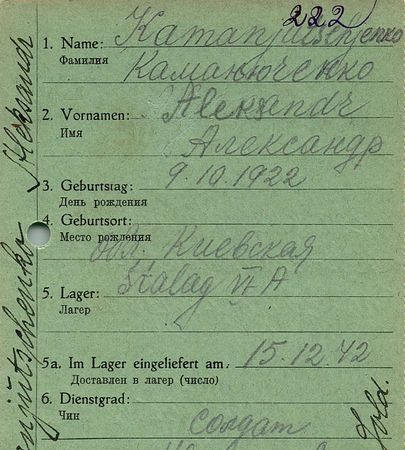 222
1. Name: Katanjutschenko
Фамилия
Каманюченко
2. Vornamen: Alexandr
Имя
Александр
3. Geburtstag: 9.10.1922
День рождения
4. Geburtsort:
Место рождения
обл. Киевская
5. Lager: Stalag VI A
Лагерь
5a. Im Lager eingeliefert am: 15.12.42
Доставлен в лагерь (число)
6. Dienstgrad:
Чин
солдат